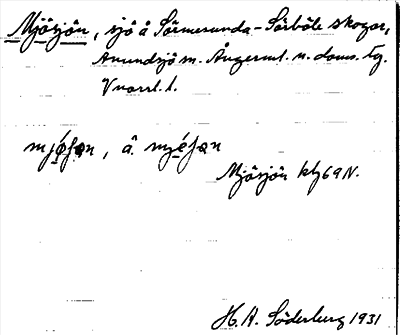 Mjösjön, sjö å Sörmesunda-Sörböle skogar,
Anundsjö sn. Ångerml. n. doms. tg.
Vnorrl. l.
mjǿʃən, å. mjéʃən
Mjösjön kbl 69 N.
H. A. Söderberg 1931